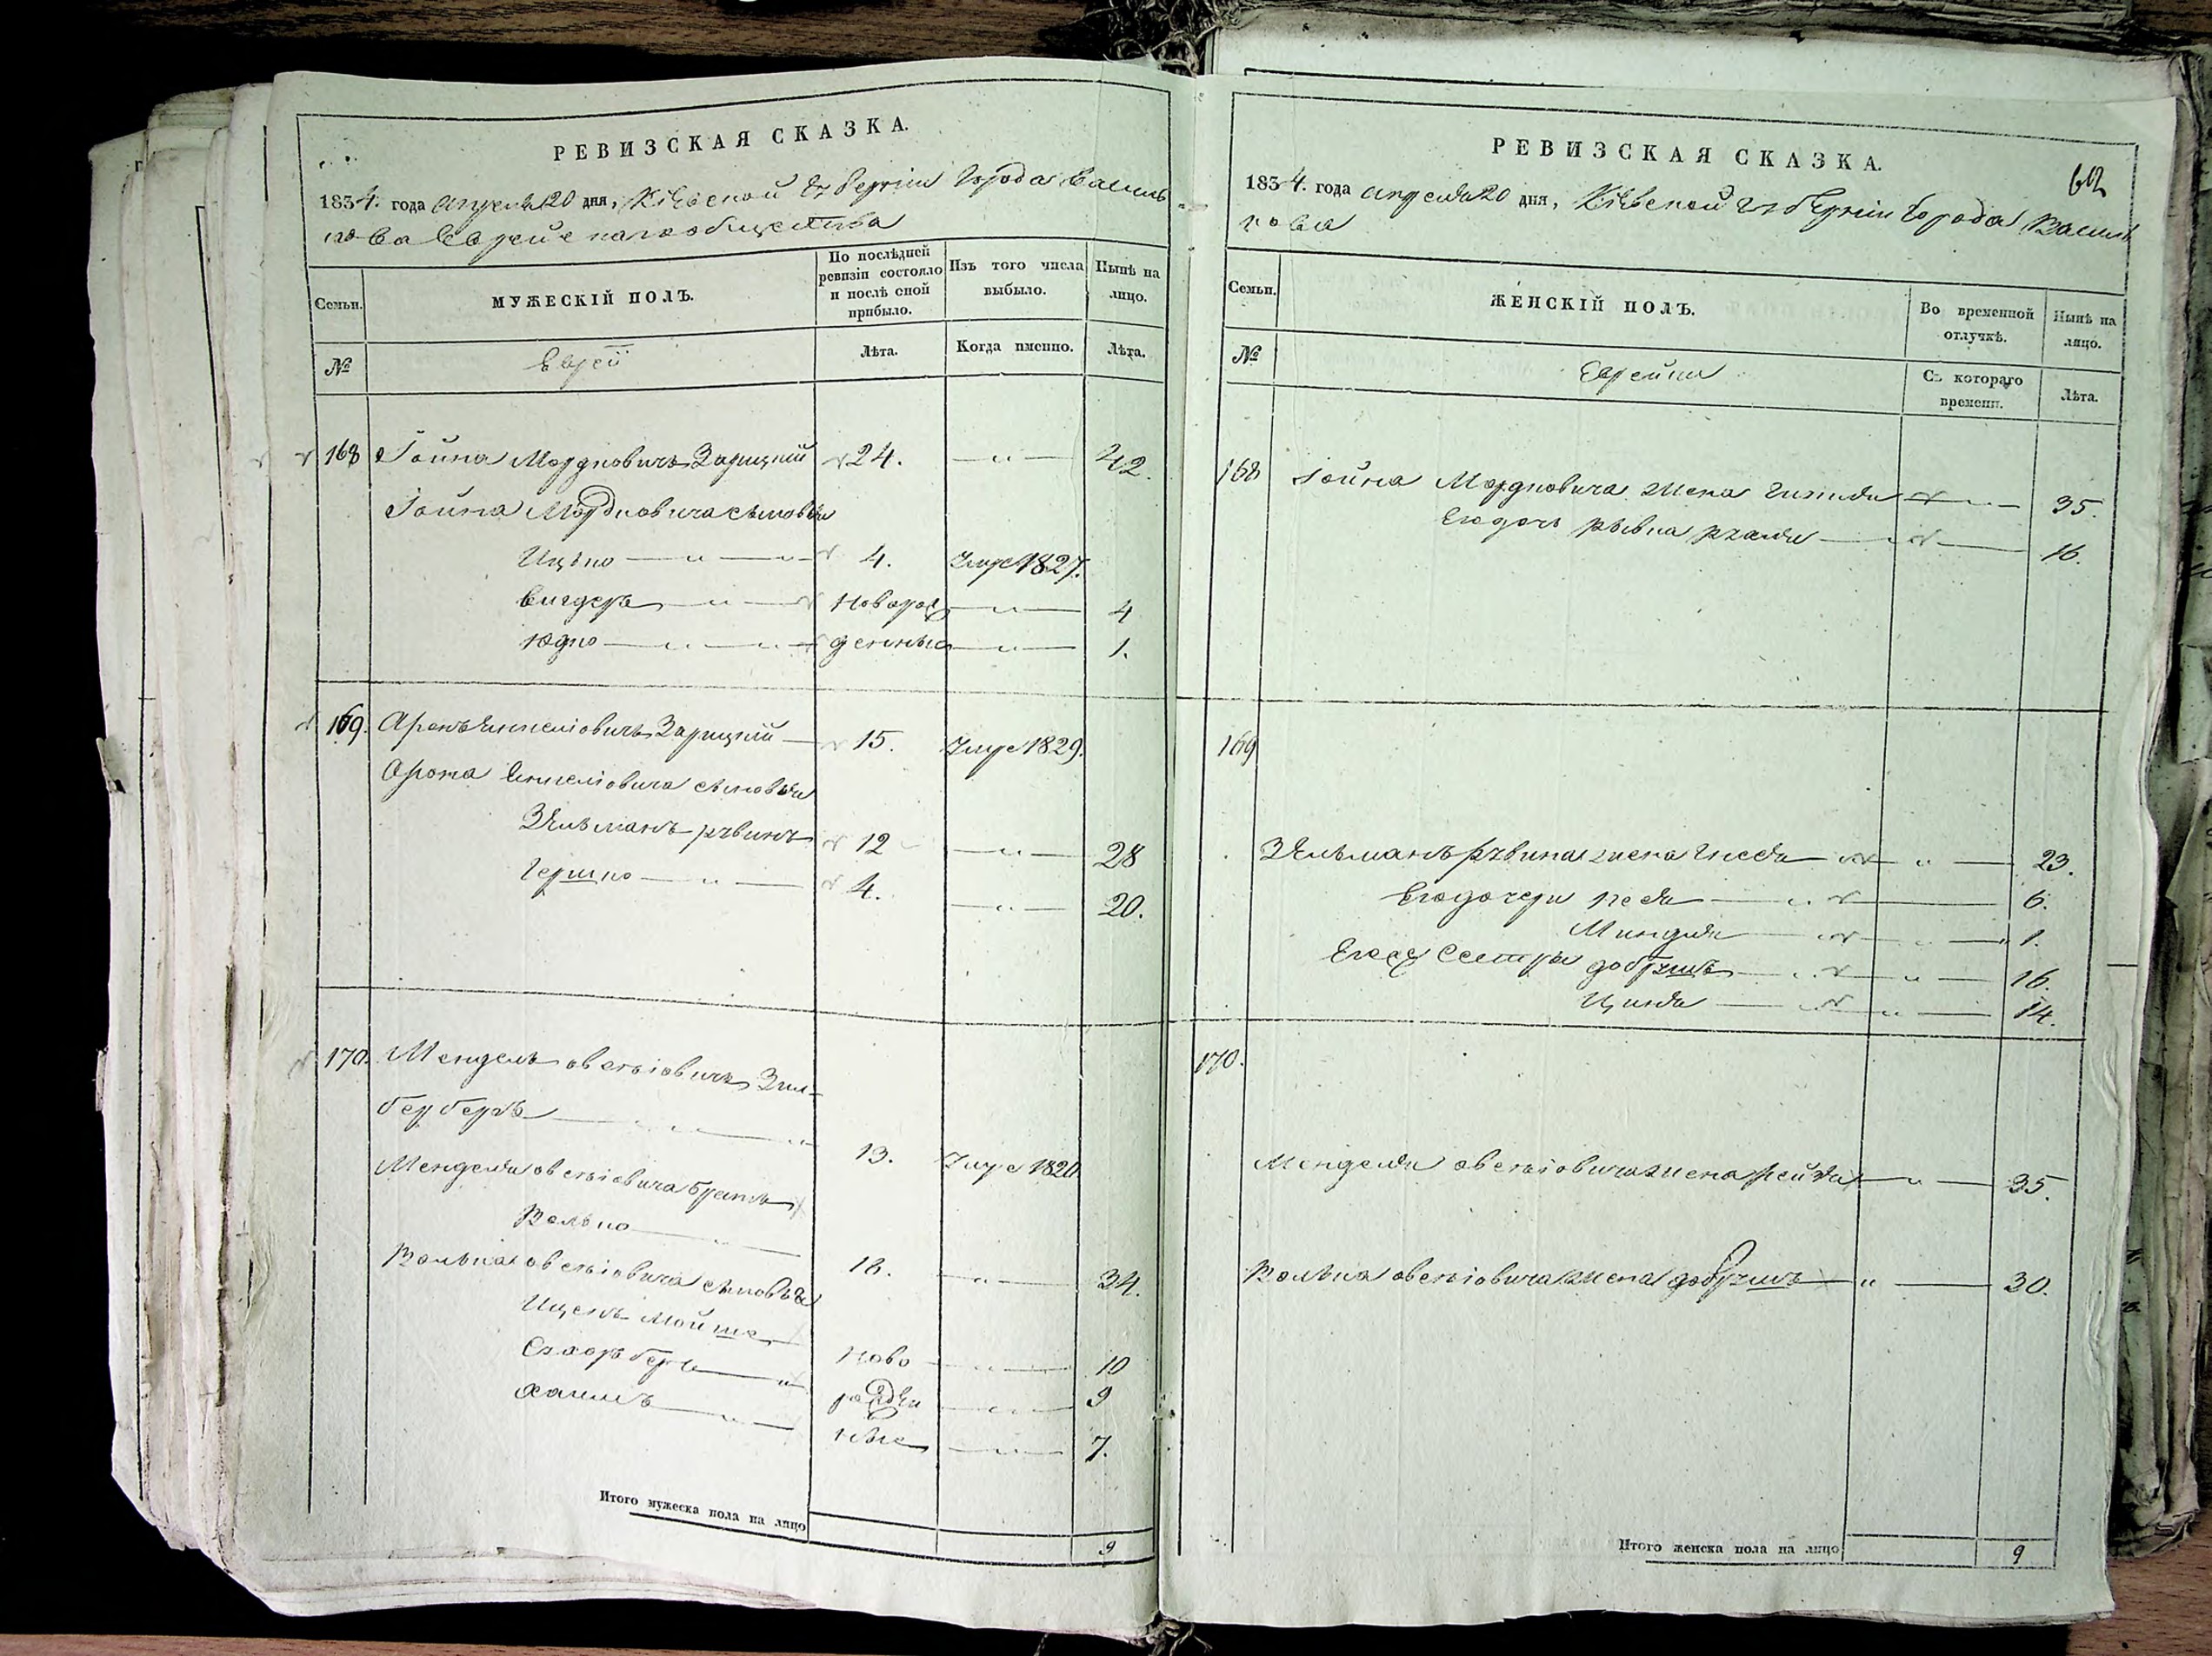 РЕВИЗСКАЯ СКАЗКА.
1834. года апреля 20 дня, Кіевской Губерніи Города Василь
кова Еврейскаго общества
Семьи.
МУЖЕСКІЙ ПОЛЪ.
По послѣдней ревизіи состояло и послѣ оной прибыло.
Изъ того числа выбыло.
Нынѣ на лицо.
№
Евреи
Лѣта.
Когда именно.
Лѣта.
168 Іойна Мордковичъ Зарицкій 24. — " — 42.
Іойна Мордковича сыновья
Ицько — " — " — 4. Умре 1827.
Вигдеръ — " — Новорож — " — 4
Юдко — " — " — денные — " — 1.
169. Аронъ Янкеліовичъ Зарицкій — 15. Умре 1829.
Арона Янкеліовича сыновья
Зельманъ рывинъ 12 — " — 28
Гершко — " — 4. — " — 20.
170. Мендель овсеіовичъ Зил-
бербергъ — " — " 13. Умре 1820
Менделя овсеіовича братъ
Волько — " — 16. — " — 34.
Волька овсеіовича сыновья
Ицекъ Мойше Ново — " — 10
Сахоръ берко — " рожден — " — 9
Хаимъ — " — ные — " — 7.
Итого мужеска пола на лицо 9
РЕВИЗСКАЯ СКАЗКА.
1834. года апреля 20 дня, Кіевской Губерніи Города Василь
кова
Семьи.
ЖЕНСКІЙ ПОЛЪ.
Во временной отлучкѣ.
Нынѣ на лицо.
№
Еврейки
Съ котораго времени.
Лѣта.
168 Іойна Мордковича жена — " — 35.
Его дочь рывка рхаля — " — 16.
169
Зельманъ рывина жена Гнеся — " — 23.
Его дочери песя — " — 6.
Миндля — " — 1.
Его же Сестры добрушъ — " — " — 16.
Ципа — " — 14.
170.
Менделя овсеіовича жена рейзя — " — 35.
Волька овсеіовича жена добрушъ — " — 30.
Итого женска пола на лицо 9